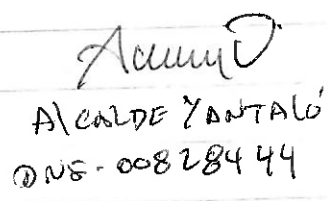 Alcalde Yantaló
DNE-00828444